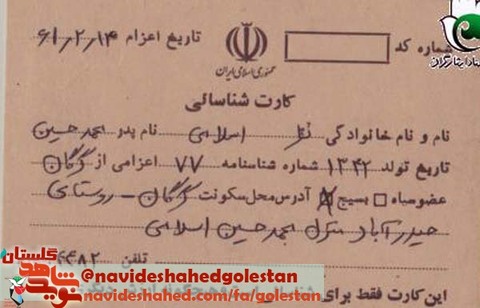 شماره کد
تاریخ اعزام ۶۱/۲/۱۴
جمهوری اسلامی ایران
کارت شناسائی
نام و نام خانوادگی اسلامی نام پدر محمد حسین
تاریخ تولد ۱۳۴۲ شماره شناسنامه ۷۷ اعزامی از گرگان
عضو سپاه بسیج آدرس محل سکونت گرگان - روستای
حیدرآباد منزل محمد حسین اسلامی
تلفن ۴۴۸۲
این کارت فقط برای
گلستان
نوید شاهد
@navideshahedgolestan
navideshahed.com/fa/golestan